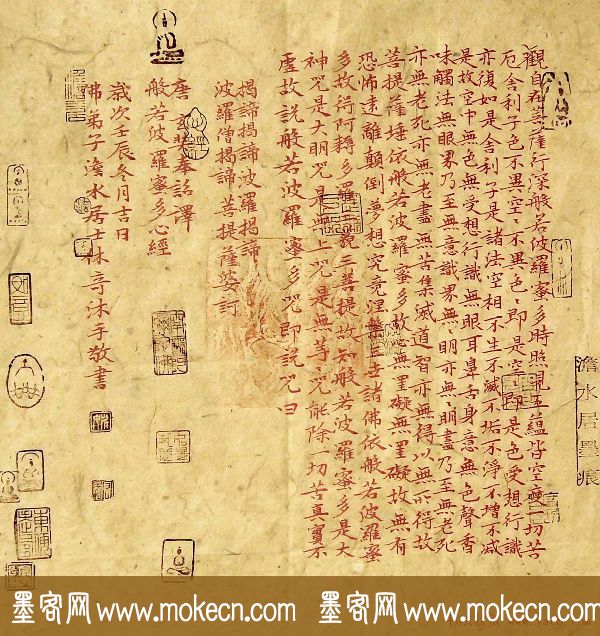 澹水居墨痕
觀自在菩薩行深般若波羅蜜多時照見五蘊皆空度一切苦
厄舍利子色不異空、不異色、即是空、即是色受想行識
亦復如是舍利子是諸法空相不生不滅不垢不淨不增不減
是故空中無色無受想行識無眼耳鼻舌身意無色聲香
味觸法無眼界乃至無意識界無明亦無、明盡乃至無老死
亦無老死亦無老盡無苦集滅道智亦無得以無所得故
菩提薩埵依般若波羅蜜多故心無罣礙無罣礙故無有
恐怖遠離顛倒夢想究竟涅槃三世諸佛依般若波羅蜜
多故得阿耨多羅三藐三菩提故知般若波羅蜜多是大
神咒是大明咒是無上咒是無等、咒能除一切苦真實不
虛故說般若波羅蜜多咒即說咒曰
揭諦揭諦波羅揭諦
波羅僧揭諦菩提薩婆訶
唐玄奘奉詔譯
般若波羅蜜多心經
歲次壬辰冬月吉日
佛弟子澹水居士林奇沐手敬書
墨客网 www.mokecn.com 墨客网 www.mokecn.com